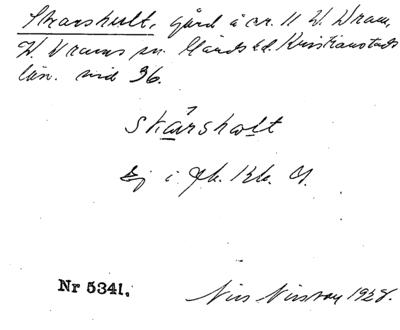 Skarshult, gård å nr. 11 V. Vram,
V. Vrams sn. Gärds hd. Kristianstads
län. sid 36.
skàrshɷlt
Ej i Jb. Kb. O.
Nr 5341.
Nils Nilsson 1928.